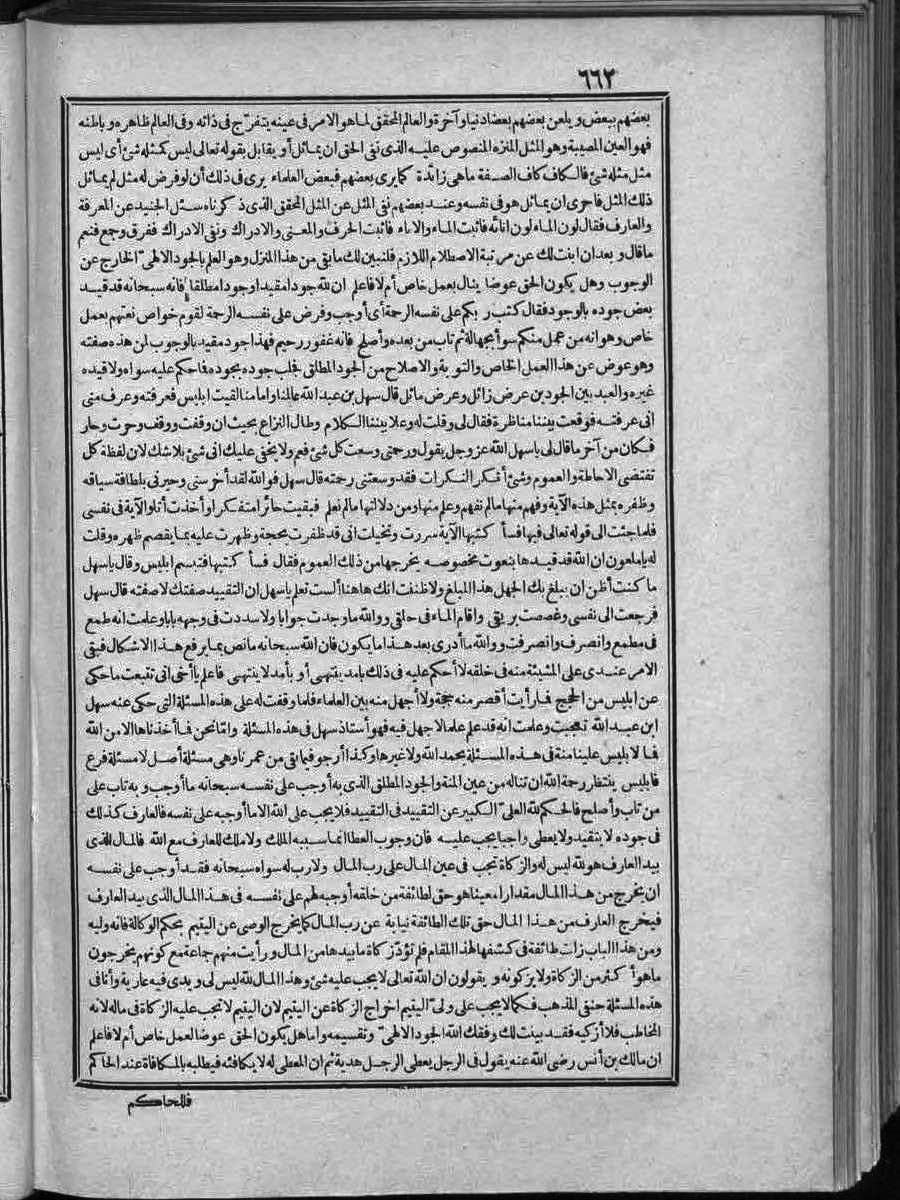 ٦٦٢
بعضهم ببعض ويلعن بعضهم بعضا دنيا وآخرة والعالم المحقق لما هو الامر فى عينه يتفرّج فى ذاته وفى العالم ظاهره وباطنه
فهو العين المصيبة وهو المثل المنزه المنصوص عليه الذى نفى الحق ان يماثل أو يقابل بقوله تعالى ليس كمثله شئ أى ليس
مثل مثله شئ فالكاف كاف الصفة ماهى زائدة كما يرى بعضهم فبعض العلماء يرى فى ذلك أن لو فرض له مثل لم يماثل
ذلك المثل فاحرى ان يماثل هو فى نفسه وعند بعضهم نفى المثل عن المثل المحقق الذى ذكرناه سئل الجنيد عن المعرفة
والعارف فقال لون الماء لون انائه فاثبت الماء والاناء فاثبت الحرف والمعنى والادراك ونفى الادراك ففرق وجمع فنعم
ماقال وبعد ان ابنت لك عن مرتبة الاصطلام اللازم فلنبين لك مابقى من هذا المنزل وهو العلم بالجود الالهىّ الخارج عن
الوجوب وهل يكون الحق عوضا ينال بعمل خاص أم لا فاعلم ان لله جودا مقيدا وجودا مطلقا فانه سبحانه قد قيد
بعض جوده بالوجود فقال كتب ربكم على نفسه الرحمة أى أوجب وفرض على نفسه الرحمة لقوم خواص نعتهم بعمل
خاص وهو انه من عمل منكم سوأ بجهالة ثم تاب من بعده وأصلح فانه غفور رحيم فهذا جود مقيد بالوجوب لمن هذه صفته
وهو عوض عن هذا العمل الخاص والتوبة والاصلاح من الجود المطلق فجلب جوده بجوده فاحكم عليه سواه ولاقيده
غيره والعبد بين الجود ين عرض زائل وعرض مائل قال سهل بن عبد الله عالمنا وامامنا لقيت ابليس فعرفته وعرف منى
انى عرفته فوقعت بيننا مناظرة فقال لى وقلت له وعلا بيننا الكلام وطال النزاع بحيث ان وقفت ووقف وحرت وحار
فكان من آخر ماقال لى ياسهل الله عز وجل يقول ورحمتى وسعت كل شئ فعم ولا يخفى عليك انى شئ بلاشك لان لفظة كل
تقتضى الاحاطة والعموم وشئ أنكر النكرات فقد وسعتنى رحمته قال سهل فوالله لقد أخرسنى وحيرنى بلطافة سياقه
وظفره بمثل هذه الآية وفهم منها مالم نفهم وعلم منها ومن دلالتها مالم نعلم فبقيت حائرا متفكرا وأخذت أتلو الآية فى نفسى
فلما جئت الى قوله تعالى فيها فسأ كتبها الآية سررت وتخيلت انى قد ظفرت بحجة وظهرت عليه بما يقصم ظهره وقلت
له ياملعون ان الله قد قيدها بنعوت مخصوصه يخرجها من ذلك العموم فقال فسأ كتبها فتبسم ابليس وقال ياسهل
ما كنت أظن ان يبلغ بك الجهل هذا المبلغ ولا ظننت انك هاهنا ألست تعلم ياسهل ان التقييد صفتك لاصفته قال سهل
فرجعت الى نفسى وغصصت بريقى واقام الماء فى حلقى ووالله ماوجدت جوابا ولاسددت فى وجهه بابا وعلمت انه طمع
فى مطمع وانصرف وانصرفت ووالله ما أدرى بعد هذا ما يكون فان الله سبحانه مانص بما يرفع هذا الاشكال فبقى
الامر عندى على المشيئة منه فى خلقه لا أحكم عليه فى ذلك بامد ينتهى أو بأمد لا ينتهى فاعلم يا أخى انى تتبعت ماحكى
عن ابليس من الحجج فما رأيت أقصر منه حجة ولا أجهل منه بين العلماء فلما وقفت له على هذه المسئلة التى حكى عنه سهل
ابن عبد الله تعجبت وعلمت انه قد علم علما لاجهل فيه فهو أستاذ سهل فى هذه المسئلة وامّا نحن فما أخذناها الا من الله
فما لابليس علينا منة فى هذه المسئلة بحمد الله ولا غيرها وكذا أرجو فيما بقى من عمرنا وهى مسئلة أصل لا مسئلة فرع
فابليس ينتظر رحمة الله ان تناله من عين المنة والجود المطلق الذى به أوجب على نفسه سبحانه ما أوجب وبه تاب على
من تاب وأصلح فالحكم لله العلىّ الكبير عن التقييد فى التقييد فلا يجب على الله الا ما أوجبه على نفسه فالعارف كذلك
فى جوده لا يتقيد ولا يعطى واجبا يجب عليه فان وجوب العطاء انما سببه الملك ولا ملك للعارف مع الله فالمال الذى
بيد العارف هو لله ليس له والزكاة تجب فى عين المال على رب المال ولا رب له سواه سبحانه فقد أوجب على نفسه
ان يخرج من هذا المال مقدارا معينا هو حق لطائفة من خلقه أوجبه لهم على نفسه فى هذا المال الذى بيد العارف
فيخرج العارف من هذا المال حق تلك الطائفة نيابة عن رب المال كما يخرج الوصى عن اليتيم بحكم الوكالة فانه وليه
ومن هذا الباب زلت طائفة فى كشفها لهذا المقام فلم تؤدّ زكاة ما بيدها من المال ورأيت منهم جماعة مع كونهم يخرجون
ماهو أكثر من الزكاة ولا يزكونه ويقولون ان الله تعالى لا يجب عليه شئ وهذا المال لله ليس لى ويدى فيه عارية وأنا فى
هذه المسئلة حنفى المذهب فكما لا يجب على ولىّ اليتيم اخراج الزكاة عن اليتيم لان اليتيم لا تجب عليه الزكاة فى ماله لانه
المخاطب فلا أزكيه فقد بينت لك وفقك الله الجود الالهىّ وتقسيمه واما هل يكون الحق عوضا لعمل خاص أم لا فاعلم
ان مالك بن أنس رضى الله عنه يقول فى الرجل يعطى الرجل هدية ثم ان المعطى له لا يكافئه فيطلبه بالمكافاة عند الحاكم
فللحاكم